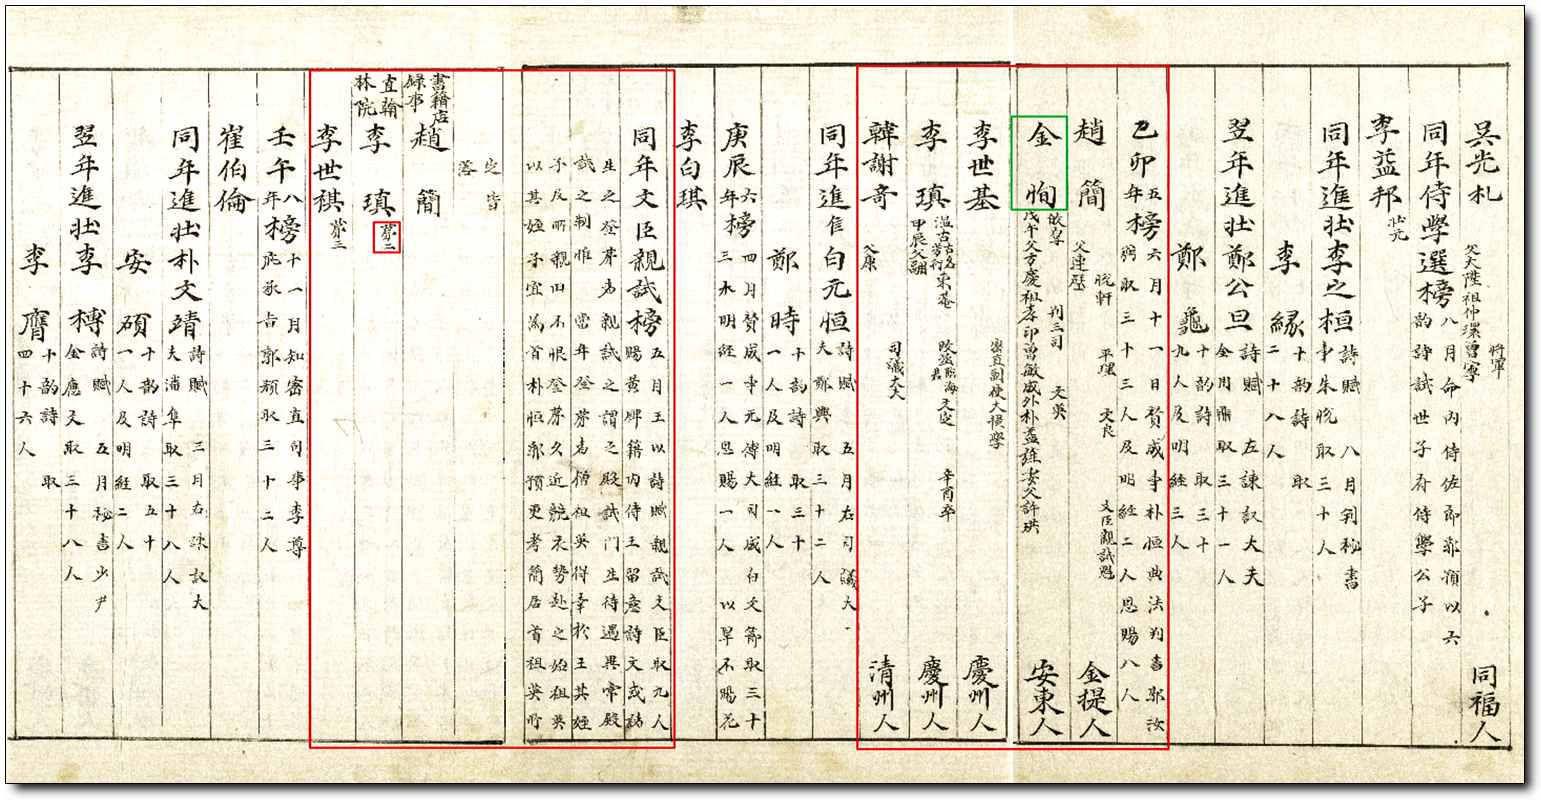 吳光札
父大陞祖仲璟曾寧 將軍
同福人
同年侍學選榜
八月命內侍佐郎
以六韵詩試世子府侍學公子
李益邦 壯元
同年進壮李之桓
詩賦 八月判秘書
事朱悅取三十人
李 緣
十韵詩 取
二十八人
翌年進壮鄭公旦
詩賦 左諫議大夫
金周鼎取三十一人
鄭 龜
十韵詩 取三十
九人及明經三人
己卯年榜
五
六月十一日贊成事朴恒典法判書郭汝
弼取三十三人及明經二人恩賜八人
趙 簡
父連壁
悅軒 平理 文良 文臣親試魁
金提人
金 恂
敬孚 判三司 文英
戊午父方慶祖孝印曾敏成外朴益旌妻父許珙
安東人
李世基
密直副使大提學
慶州人
李 瑱
溫古古名芳衍東菴
甲辰父翮
政丞臨海君 文定 辛酉卒
慶州人
韓謝奇
父康 司議大夫
清州人
同年進壮白元恒
詩賦 五月右司議大
夫鄭興取三十二人
鄭 時
十韵詩 取三十
一人及明經一人
庚辰年榜
六
四月贊成事元傅大司成白文節取三十
三人明經一人恩賜一人 以旱不賜花
李白琪
同年文臣親試榜
五月王以詩賦親試文臣取九人
賜黃牌籍內侍王留意詩文或請
生之登第者親試之謂之殿試門生待遇異常殿
試之制惟 當年登第者僧祖英得幸於王其姪
子及所親旧不限登第久近競求勢赴之始祖英
以其姪子宜爲首朴恒郭預更考簡居首祖英所
定皆
落
書籍店
錄事
趙 簡
直翰
林院
李 瑱
第二
李世祺
第三
壬午年榜
八
十一月知密直司事李尊
庇承旨郭預取三十二人
崔伯倫
同年進壮朴文靖
詩賦 三月右諫議大
夫潘阜取三十八人
安 碩
十韵詩 取五十
一人及明經二人
翌年進壮李 槫
詩賦 五月秘書少尹
金應文取三十八人
李 膺
十韵詩 取
四十六人